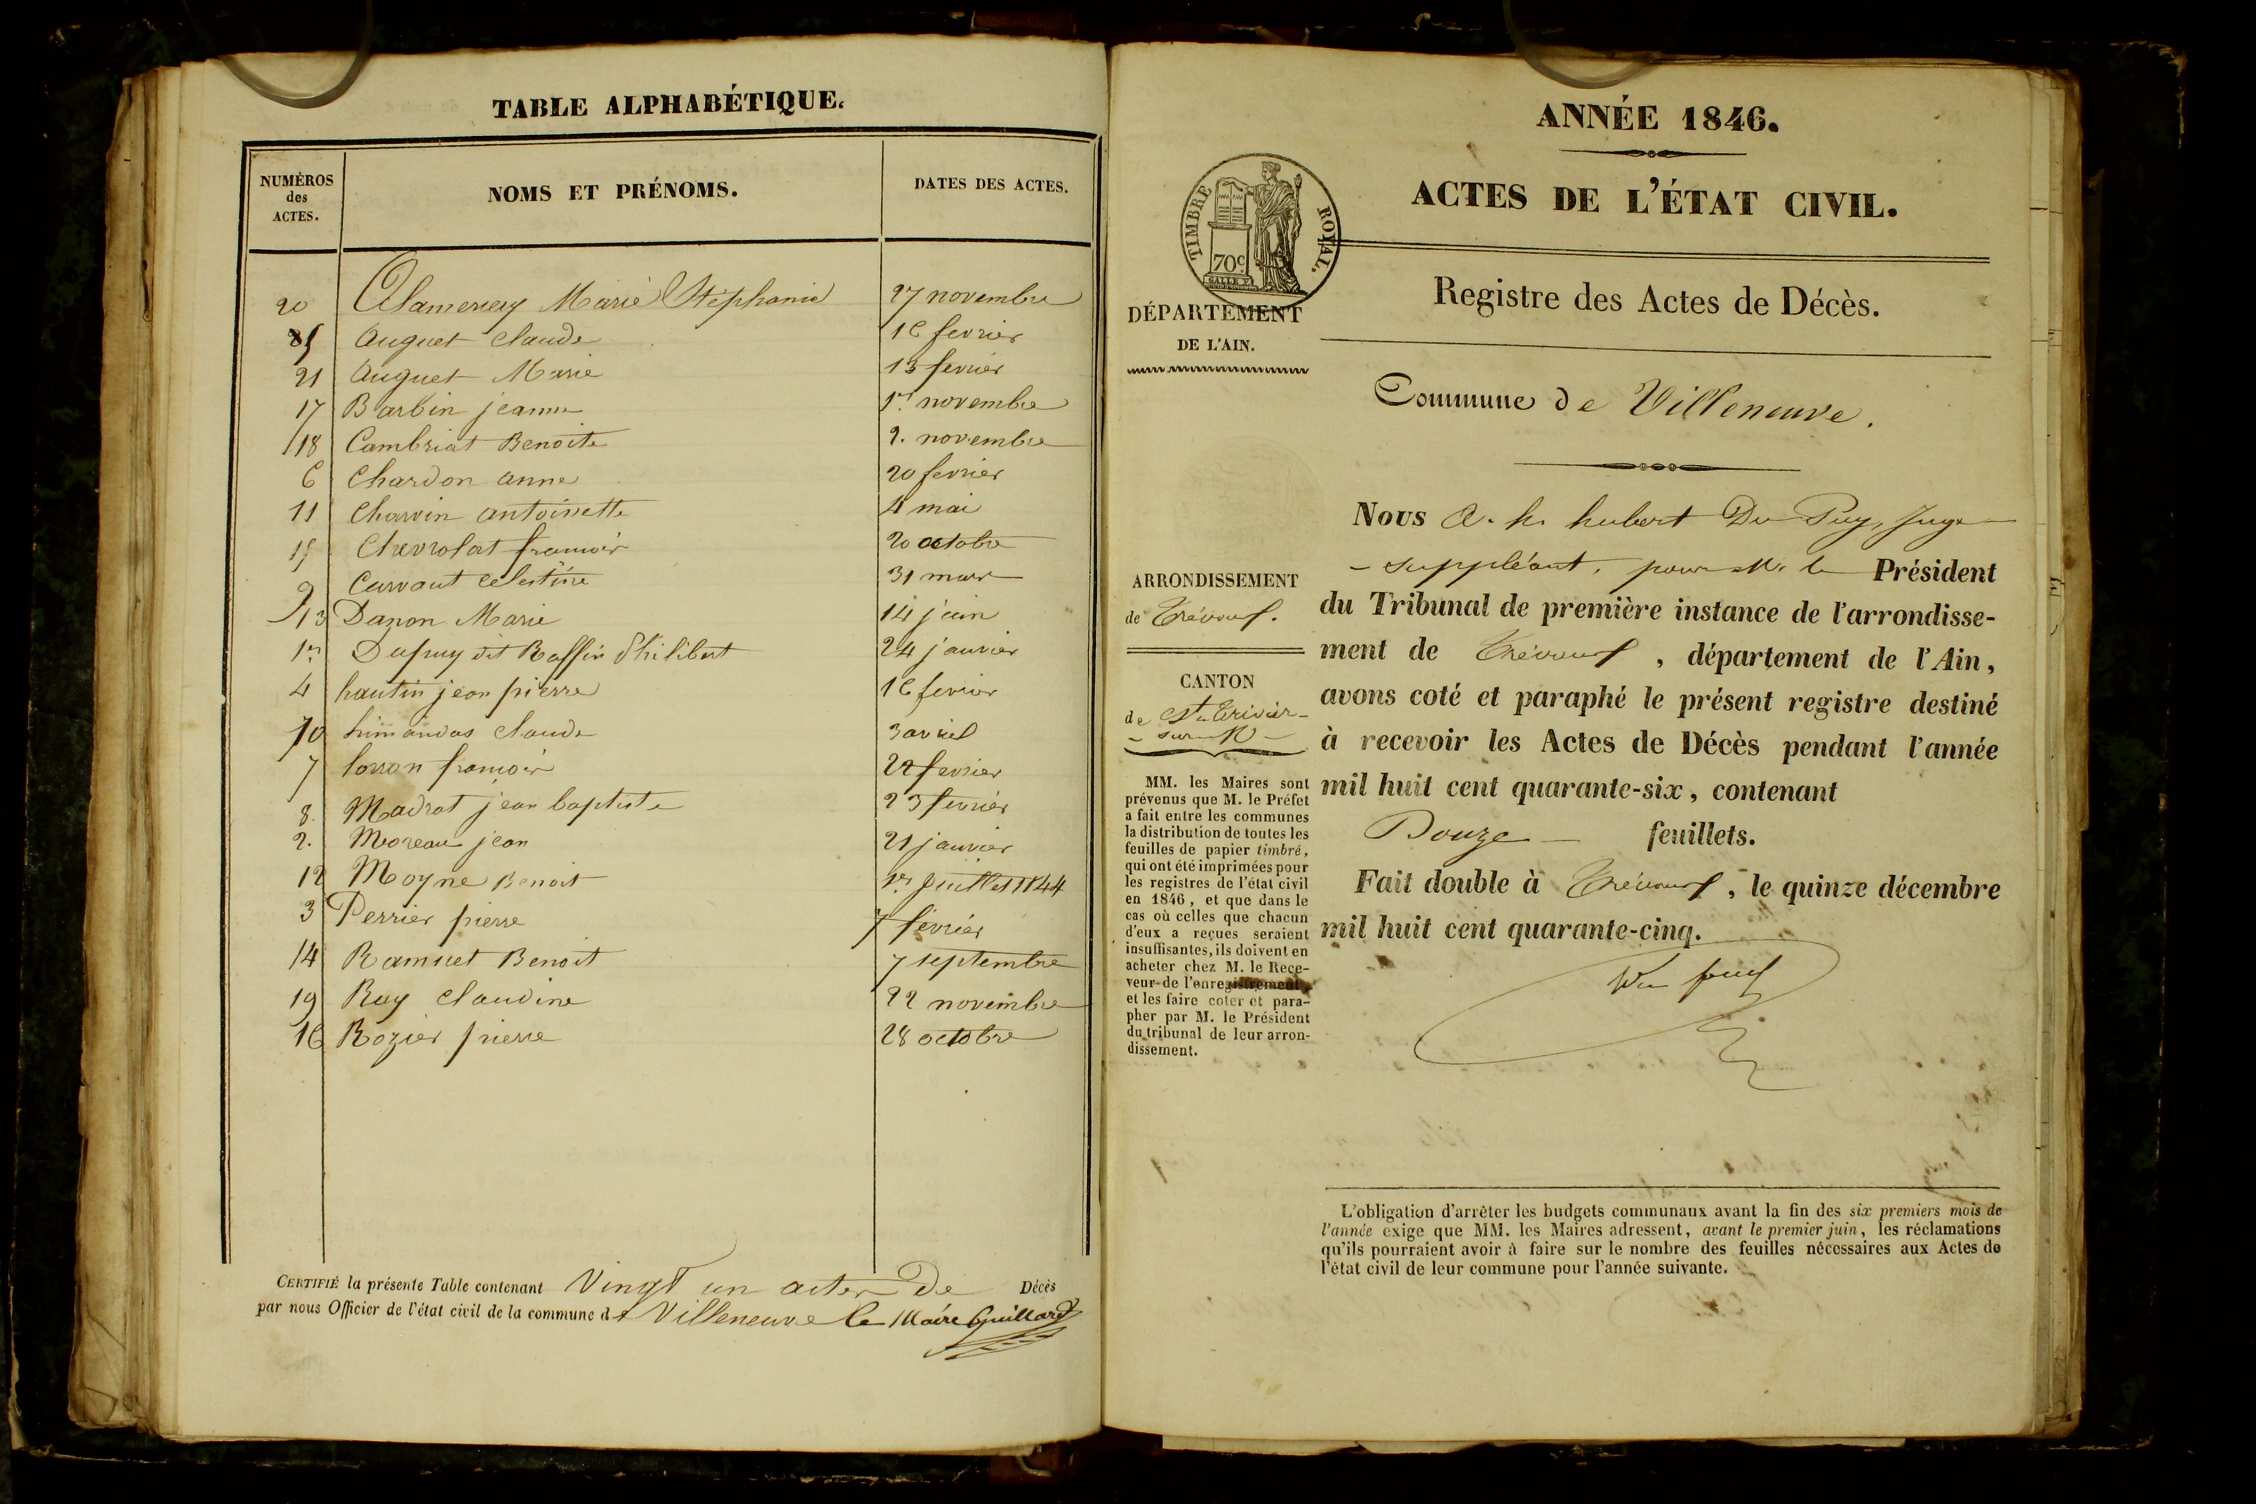 TABLE ALPHABÉTIQUE.
NUMÉROS des ACTES. NOMS ET PRÉNOMS. DATES DES ACTES.
20 Alamercery Marie Stéphanie 27 novembre
5 Auguet Claude 16 fevrier
21 Auguet Marie 13 fevrier
17 Barbin jeanne 1er novembre
18 Cambriat Benoite 2. novembre
6 Chardon anne 20 fevrier
11 Charvin antoinette 4 mai
15 Chevrolat francois 20 octobre
9 Carvaut Celestine 31 mars
13 Danon Marie 14 juin
1er Dupuy dit Raffin Philibert 24 janvier
4 hautin jean pierre 16 fevrier
10 humandas Claude 3 avriel
7 lorron francois 22 fevrier
8. Madrat jean baptiste 23 fevrier
2. Moreau jean 21 janvier
12 Moyne Benoit 1er juillet 1844
3 Perrier pierre 7 fevrier
14 Ramuet Benoit 7 septembre
19 Ray Claudine 22 novembre
16 Rozier pierre 28 octobre
CERTIFIÉ la présente Table contenant Vingt un actes De Décès
par nous Officier de l'état civil de la commune de Villeneuve le Maire Guillard
ANNÉE 1846.
ACTES DE L'ÉTAT CIVIL.
TIMBRE ROYAL.
70c
DÉPARTEMENT
DE L'AIN.
Registre des Actes de Décès.
Commune de Villeneuve.
ARRONDISSEMENT
de Trévoux.
CANTON
de St Trivier
sur
MM. les Maires sont
prévenus que M. le Préfet
a fait entre les communes
la distribution de toutes les
feuilles de papier timbré,
qui ont été imprimées pour
les registres de l'état civil
en 1846, et que dans le
cas où celles que chacun
d'eux a reçues seraient
insuffisantes, ils doivent en
acheter chez M. le Rece-
veur de l'enregistrement
et les faire coter et para-
pher par M. le Président
du tribunal de leur arron-
dissement.
Nous A. h. hubert Du Puy, Juge
suppléant, pour Mr. le Président
du Tribunal de première instance de l'arrondisse-
ment de Trévoux, département de l'Ain,
avons coté et paraphé le présent registre destiné
à recevoir les Actes de Décès pendant l'année
mil huit cent quarante-six, contenant
Douze feuillets.
Fait double à Trévoux, le quinze décembre
mil huit cent quarante-cinq.
L'obligation d'arrêter les budgets communaux avant la fin des six premiers mois de
l'année exige que MM. les Maires adressent, avant le premier juin, les réclamations
qu'ils pourraient avoir à faire sur le nombre des feuilles nécessaires aux Actes de
l'état civil de leur commune pour l'année suivante.